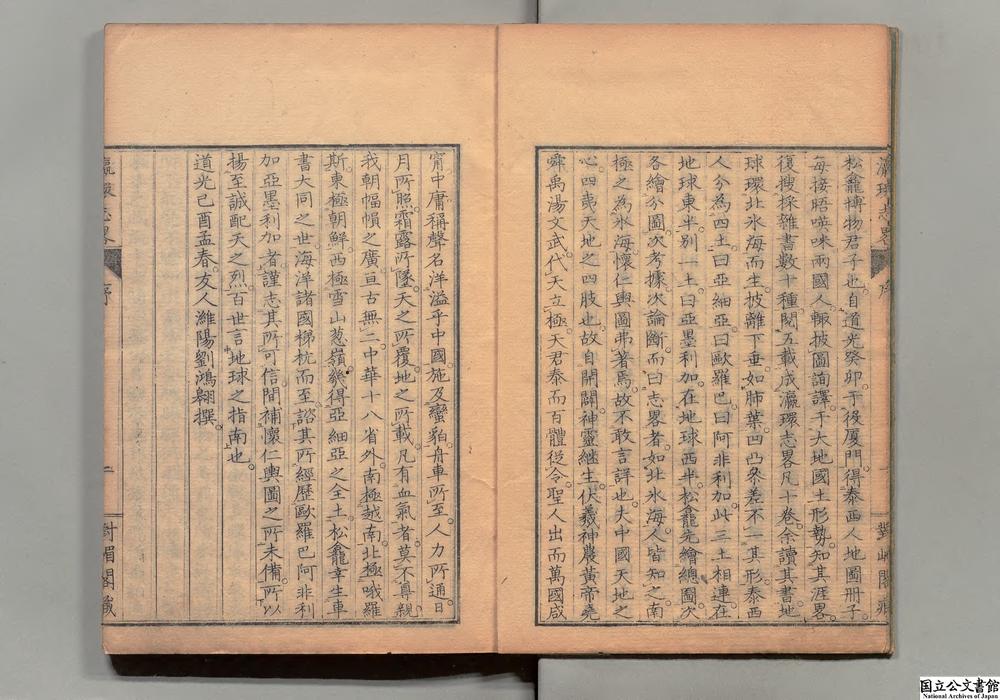 松龕博物君子也自道光癸卯于役厦門得泰西人地圖册子
每接晤㗸咪兩國人輙披圖詢譯于大地國土形勢知其涯畧
復搜採雜書數十種閱五載成瀛環志畧凡十卷余讀其書地
球環北氷海而生披離下垂如肺葉凹凸參差不一其形泰西
人分為四土曰亞細亞曰歐羅巴曰阿非利加此三土相連在
地球東半别一土曰亞墨利加在地球西半松龕先繪總圖次
各繪分圖次考據次論斷而曰志畧者如北氷海人皆知之南
極之為氷海懷仁輿圖弗著焉故不敢言詳也夫中國天地之
心四夷天地之四肢也故自開闢神靈繼生伏羲神農黄帝堯
舜禹湯文武代天立極天君泰而百體從令聖人出而萬國咸
甯中庸稱聲名洋溢乎中國施及蠻貊舟車所至人力所通日
月所照霜露所墜天之所覆地之所載凡有血氣者莫不尊親
我朝幅幀之廣亘古無二中華十八省外南極越南北極哦羅
斯東極朝鮮西極雪山葱嶺幾得亞細亞之全土松龕幸生車
書大同之世海洋諸國梯杭而至諮其所經歷歐羅巴阿非利
加亞墨利加者謹志其所可信間補懷仁輿圖之所未備所以
揚至誠配天之烈百世言地球之指南也
道光己酉孟春友人濰陽劉鴻翱撰
瀛環志畧
序
二
對嵋閣藏